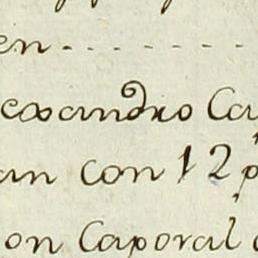 en - - - - - -
exandro Ca
an con 12 p
on Caporal